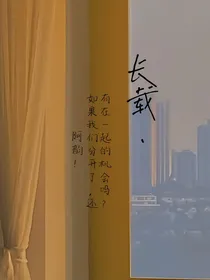 长载.
阿！
如果我们分开了，还
有在一起的机会吗？